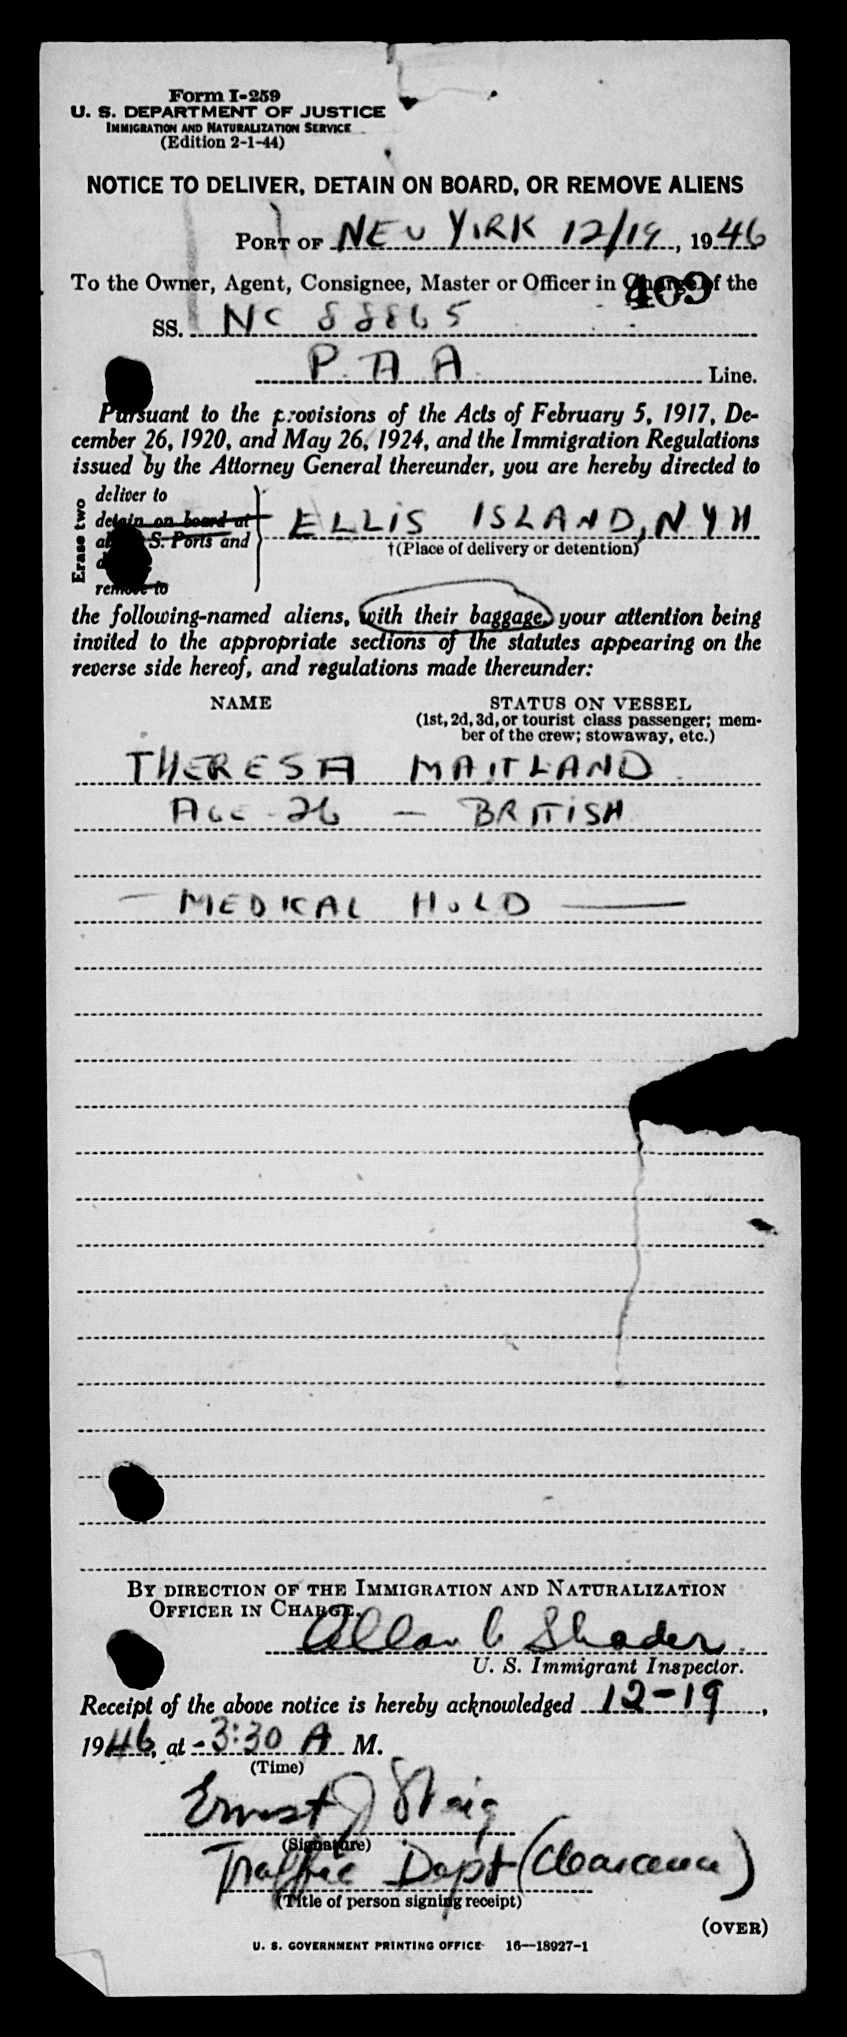 Form I-259
U. S. DEPARTMENT OF JUSTICE
IMMIGRATION AND NATURALIZATION SERVICE
(Edition 2-1-44)
NOTICE TO DELIVER, DETAIN ON BOARD, OR REMOVE ALIENS
PORT OF NEW YORK 12/19, 1946
To the Owner, Agent, Consignee, Master or Officer in Charge of the
409
SS. NC 88865
P. A A. Line.
Pursuant to the provisions of the Acts of February 5, 1917, De-
cember 26, 1920, and May 26, 1924, and the Immigration Regulations
issued by the Attorney General thereunder, you are hereby directed to
Erase two
deliver to
detain on board at
S. Ports and
remove to
ELLIS ISLAND, NYH
†(Place of delivery or detention)
the following-named aliens, with their baggage, your attention being
invited to the appropriate sections of the statutes appearing on the
reverse side hereof, and regulations made thereunder:
NAME STATUS ON VESSEL
(1st, 2d, 3d, or tourist class passenger; mem-
ber of the crew; stowaway, etc.)
THERESA MAITLAND
AGE - 26 — BRITISH
— MEDICAL HOLD —
BY DIRECTION OF THE IMMIGRATION AND NATURALIZATION
OFFICER IN CHARGE.
Allan C Shader
U. S. Immigrant Inspector.
Receipt of the above notice is hereby acknowledged 12-19,
1946, at - 3:30 A M.
(Time)
Ernest J
(Signature)
Traffic Dept (Clearance)
(Title of person signing receipt)
(OVER)
U. S. GOVERNMENT PRINTING OFFICE 16—18927-1